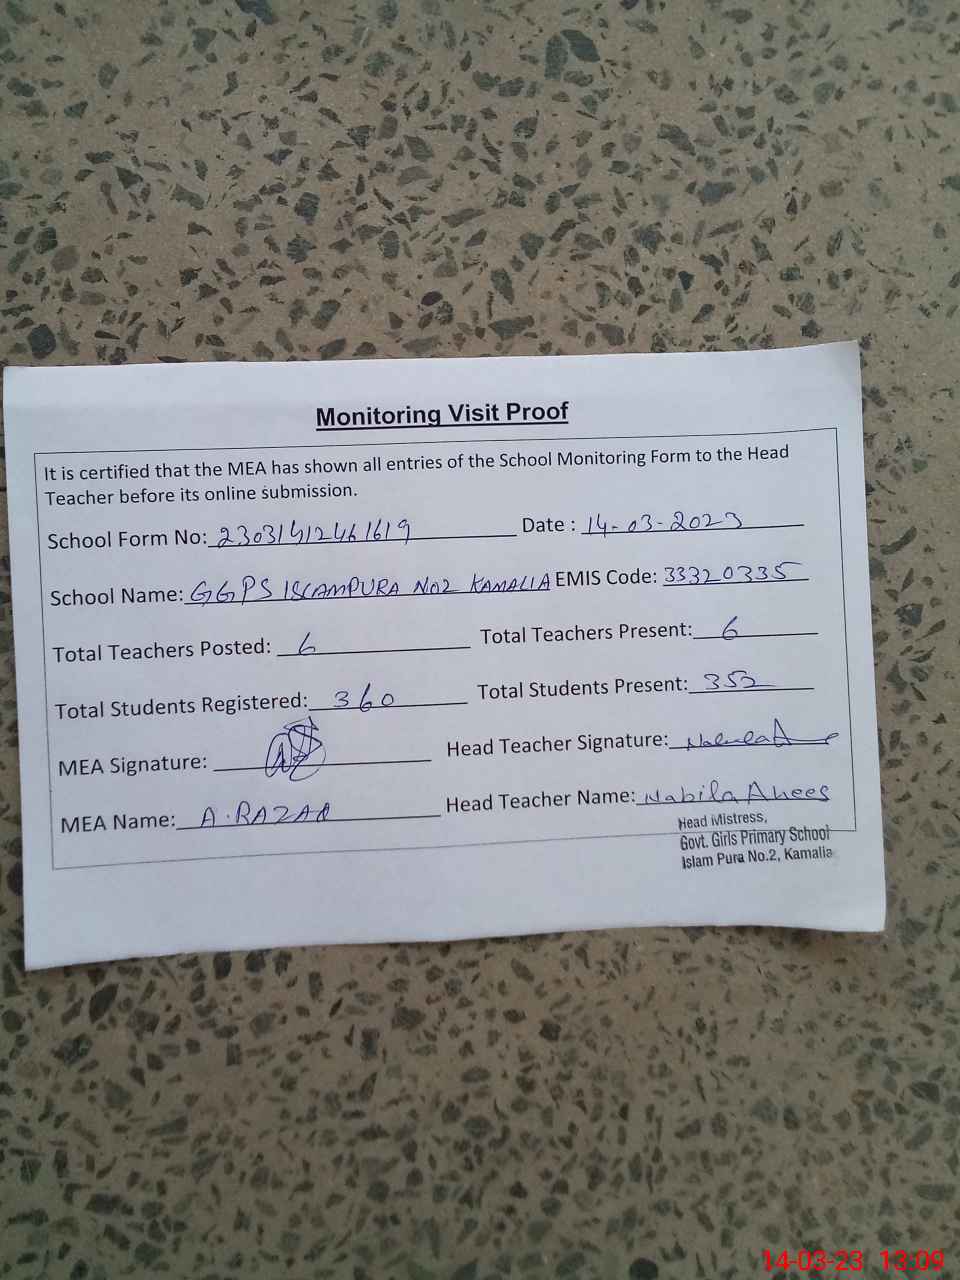 Monitoring Visit Proof
It is certified that the MEA has shown all entries of the School Monitoring Form to the Head
Teacher before its online submission.
School Form No: 2303141246 1619 Date : 14-03-2023
School Name: GGPS ISLAMPURA NO2 KAMALIA EMIS Code: 33320335
Total Teachers Posted: 6 Total Teachers Present: 6
Total Students Registered: 360 Total Students Present: 352
MEA Signature: Head Teacher Signature:
MEA Name: A.RAZAQ Head Teacher Name: Nabila Anees
Head Mistress,
Govt. Girls Primary School
Islam Pura No.2, Kamalia
14-03-23 13:09